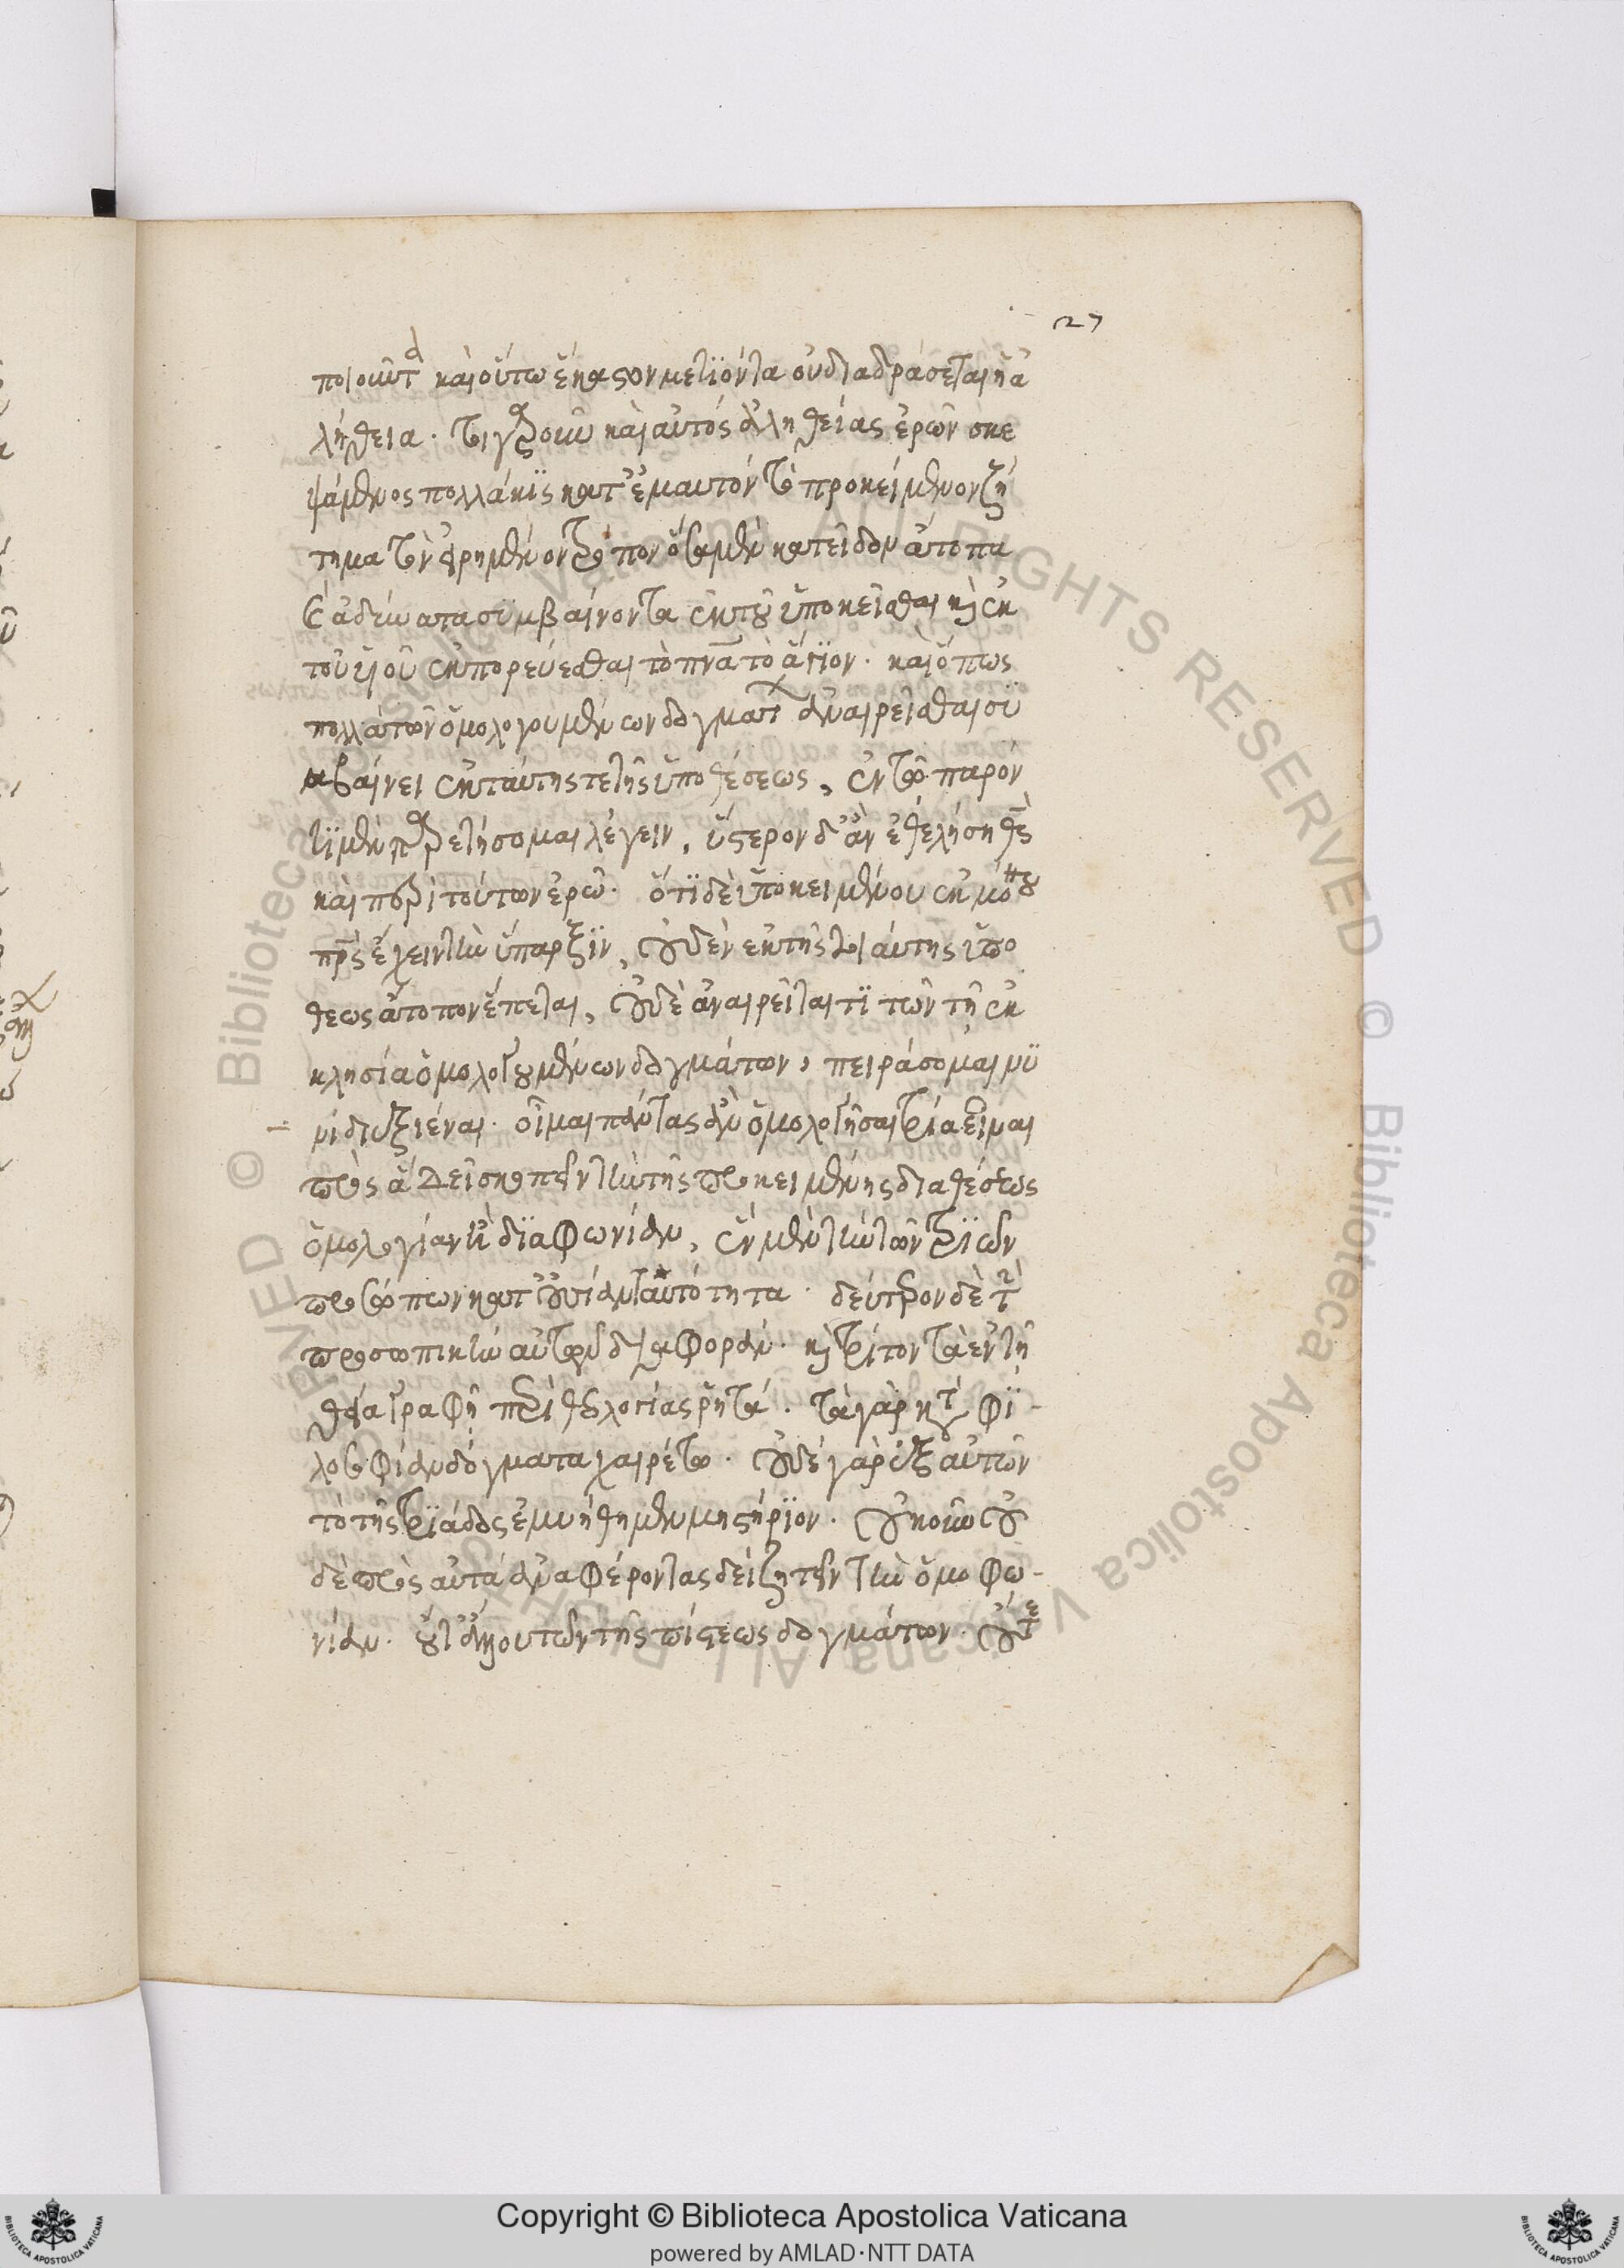 27
ποιοῦντα καὶ οὕτω ἕκαστον μετϊόντα οὐ διαδράσεται ἡ ἀ
λήθεια. τί γὰρ οὖν καὶ αὐτὸς ἀληθείας ἐρῶν σκε
ψάμενος πολλάκϊς κατ' ἐμαυτὸν τὸ προκείμενον ζή
τημα τὸν εἰρημένον τρόπον ὅσα μὲν κατεῖδον ἄτοπα
καὶ ἀδύνατα συμβαίνοντα ἐκ τοῦ ὑποκεῖσθαι καὶ ἐκ
τοῦ υἱοῦ ἐκπορεύεσθαι τὸ πνα τὸ ἅγϊον. καὶ ὅπως
πολλὰ τῶν ὁμολογουμένων δογμάτων ἀναιρεῖσθαι συ
μβαίνει ἐκ ταύτης τε τῆς ὑποθέσεως, ἐν τῷ παρόν
τϊ μὲν παραιτήσομαι λέγειν, ὕστερον δ' ἂν ἐθελήσῃ θς
καὶ περὶ τούτων ἐρῶ. ὅτϊ δὲ ὑποκειμένου ἐκ μόνου
πρς ἔχειν τὴν ὕπαρξϊν, οὐδὲν ἐκ τῆς τοιαύτης ὑπο
θεως ἄτοπον ἕπεται, οὐδὲ ἀναιρεῖταί τϊ τῶν τῇ ἐκ
κλησίᾳ ὁμολογουμένων δογμάτων, πειράσομαι νυ
νὶ διεξιέναι. οἶμαι πάντας ἂν ὁμολογῆσαι τρία εἶναι
πρὸς ἃ δεῖ σκοπεῖν τὴν τῆς προκειμένης διαθέσεως
ὁμολογίαν ἢ δϊαφωνίαν, ἓν μὲν τὴν τῶν τρϊῶν
προσώπων κατ' οὐσίαν ταὐτότητα. δεύτερον δὲ τὴν
προσωπικὴν αὐτῶν διαφοράν. καὶ τρίτον τὰ ἐν τῇ
θείᾳ γραφῇ περὶ θεολογίας ῥητά. τὰ γὰρ κατὰ φϊ-
λοσοφίαν δόγματα χαιρέτω. οὐδὲ γὰρ ἐξ αὐτῶν
τὸ τῆς τρϊάδος ἐμυήθημεν μυστήρϊον. οὐκοῦν οὐ
δὲ πρὸς αὐτὰ ἀναφέροντας δεῖ ζητεῖν τὴν ὁμοφω-
νίαν. τῶν τῆς πίστεως δογμάτων. οὔτε